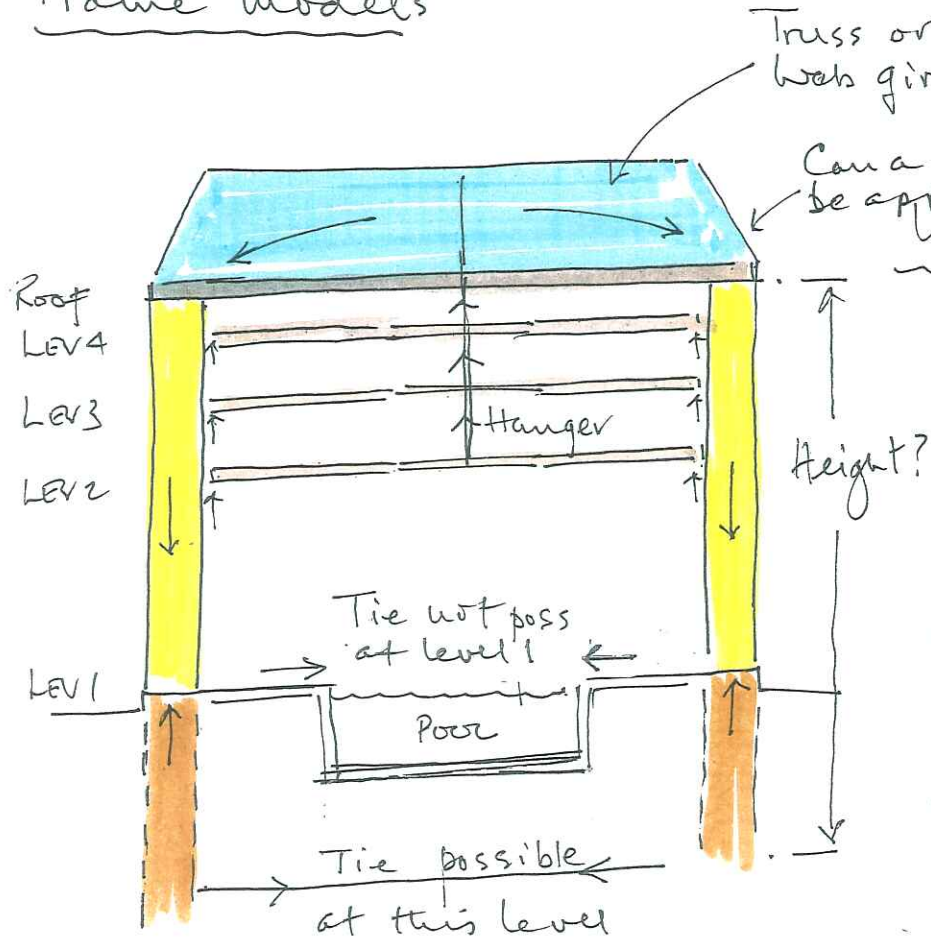 Frame models
Truss or
Web gir
Can a
be app
Roof
LEV4
LEV3
Hanger
Height?
LEV2
Tie not poss
at level 1
LEV1
Pool
Tie possible
at this level